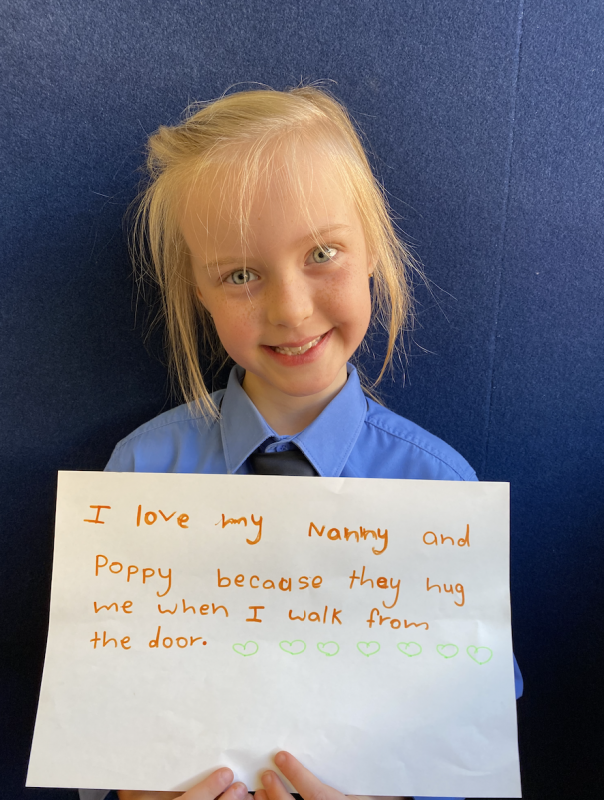 I love my Nanny and
Poppy because they hug
me when I walk from
the door.